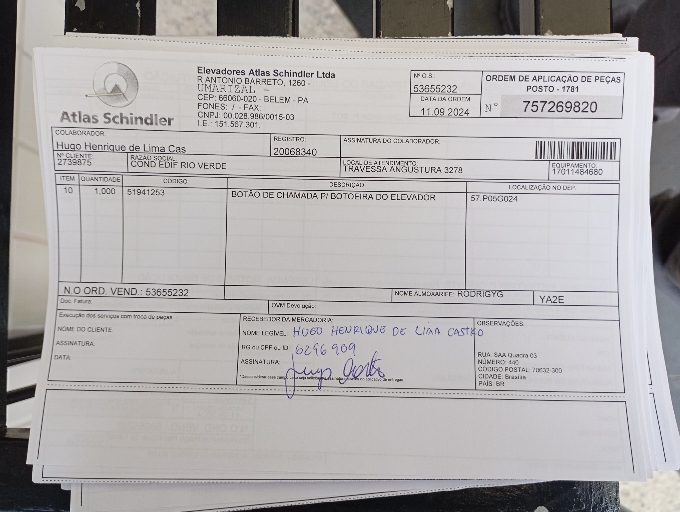 Atlas Schindler
Elevadores Atlas Schindler Ltda
R ANTONIO BARRETO, 1260 -
UMARIZAL -
CEP: 66060-020 - BELEM - PA
FONES: / - FAX:
CNPJ: 00.028.986/0015-03
I.E.: 151.567.301.
Nº O.S.
53655232
DATA DA ORDEM
11.09.2024
ORDEM DE APLICAÇÃO DE PEÇAS
POSTO - 1781
Nº 757269820
COLABORADOR:
Hugo Henrique de Lima Cas
REGISTRO
20068340
ASSINATURA DO COLABORADOR:
Nº CLIENTE:
2739875
RAZÃO SOCIAL:
COND EDIF RIO VERDE
LOCAL DE ATENDIMENTO:
TRAVESSA ANGUSTURA 3278
EQUIPAMENTO:
17011484680
ITEM QUANTIDADE CÓDIGO DESCRIÇÃO LOCALIZAÇÃO NO DEP.
10 1,000 51941253 BOTÃO DE CHAMADA P/ BOTOEIRA DO ELEVADOR 57.P05G024
N.O ORD. VEND.: 53655232
NOME ALMOXARIFE: RODRIGYG
YA2E
Doc. Fatura:
OVM Devolução:
Execução dos serviços com troca de peças
NOME DO CLIENTE
ASSINATURA:
DATA:
RECEBEDOR DA MERCADORIA:
NOME LEGÍVEL: HUGO HENRIQUE DE LIMA CASTRO
RG ou CPF ou ID: 6296909
ASSINATURA:
OBSERVAÇÕES:
RUA: SAA Quadra 03
NÚMERO: 440
CÓDIGO POSTAL: 70632-300
CIDADE: Brasília
PAÍS: BR